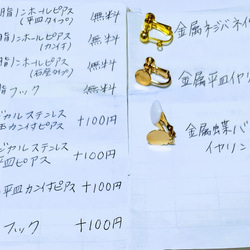 脂ノンホールピアス 無料
(平皿タイプ)
脂ノンホールピアス 無料
(カン付)
脂ノンホールピアス 無料
(石座タイプ)
脂フック 無料
ジカルステンレス +100円
玉カン付ピアス
ジカルステンレス
平皿ピアス +100円
平皿カン付ピアス +100円
フック +100円
金属ネジバネイ
金属平皿イヤリ
金属蝶バ
イヤリン